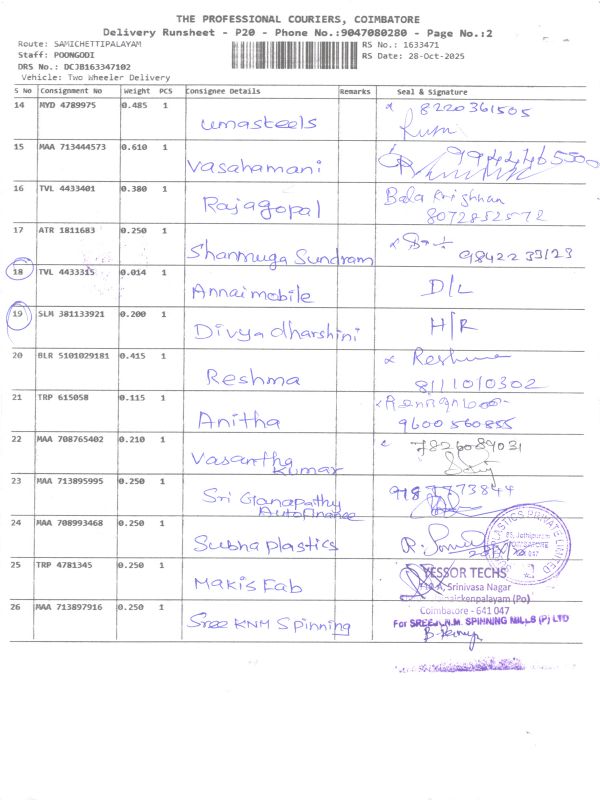 THE PROFESSIONAL COURIERS, COIMBATORE
Delivery Runsheet - P20 - Phone No.:9047080280 - Page No.:2
Route: SAMICHETTIPALAYAM RS No.: 1633471
Staff: POONGODI RS Date: 28-Oct-2025
DRS No.: DCJB163347102
Vehicle: Two Wheeler Delivery
S No Consignment No Weight PCS Consignee Details Remarks Seal & Signature
14 MYD 4789975 0.485 1 umasteels 8220361505
15 MAA 713444573 0.610 1 Vasahamani
16 TVL 4433401 0.380 1 Rajagopal Bala Krishnan
8072852572
17 ATR 1811683 0.250 1 Shanmuga Sundram
18 TVL 4433315 0.014 1 Annai mobile D/L
19 SLM 381133921 0.200 1 Divya dharshini H/R
20 BLR 5101029181 0.415 1 Reshma Reshma
8111010302
21 TRP 615058 0.115 1 Anitha
9600560855
22 MAA 708765402 0.210 1 Vasantha Kumar
23 MAA 713895995 0.250 1 Sri Ganapathy
Autofinance
24 MAA 708993468 0.250 1 Subha plastics
25 TRP 4781345 0.250 1 Makis Fab YESSOR TECHS
Srinivasa Nagar
26 MAA 713897916 0.250 1 Sree KNM Spinning Coimbatore - 641 047
For SREE K.N.M. SPINNING MILLS (P) LTD